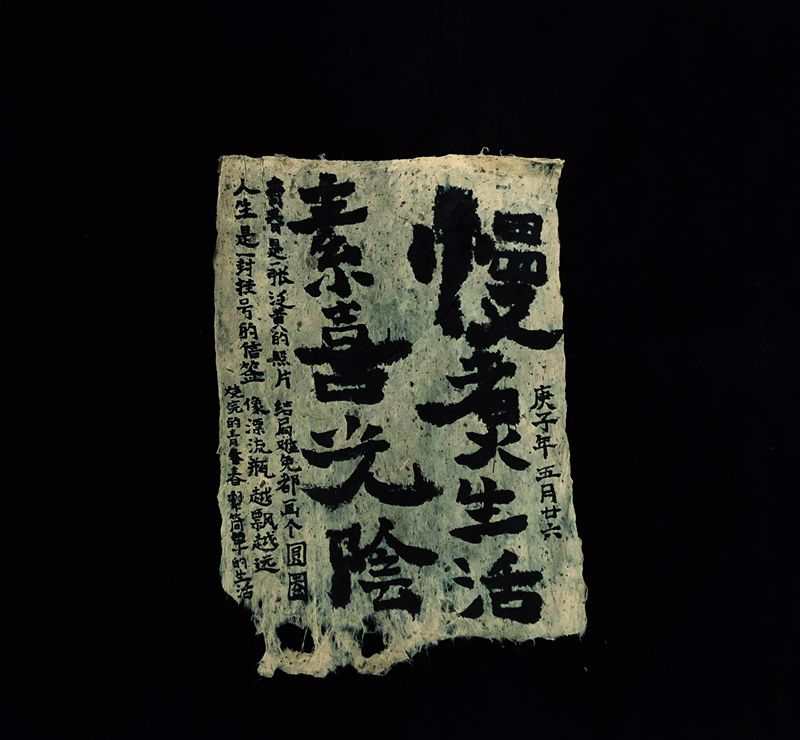 庚子年五月廿六
慢煮生活
素喜光陰
青春是一张泛黄的照片 结局难免都画个圆圈
人生是一封挂号的信签 像漂流瓶 越飘越远
烧完的青春 简单的生活